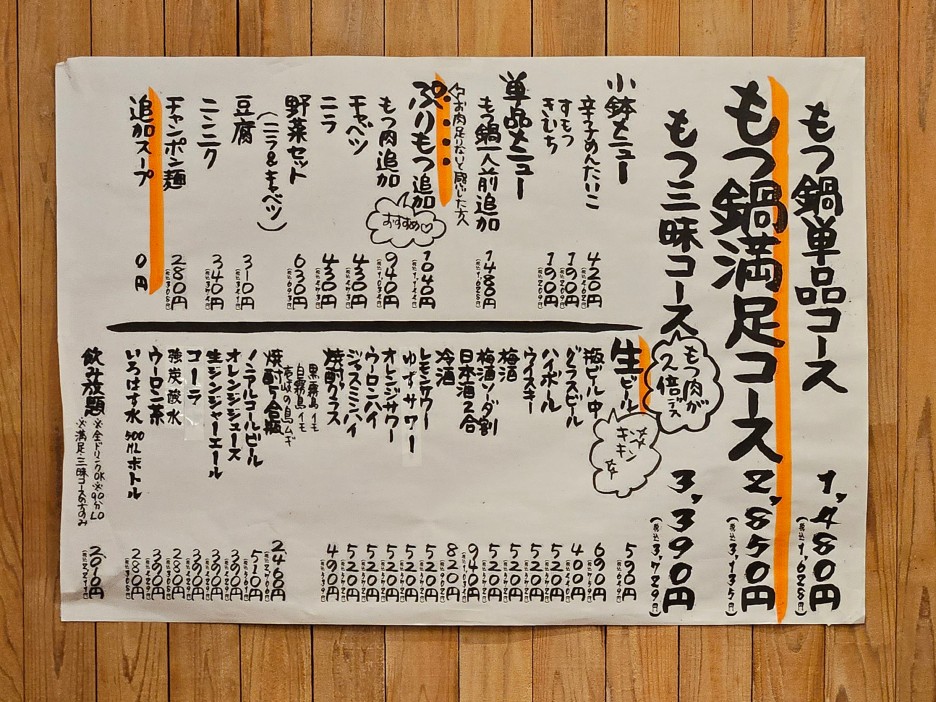 もつ鍋単品コース 1,480円
(税込1,628円)
もつ鍋満足コース 2,850円
(税込3,135円)
もつ三昧コース 3,390円
(税込3,729円)
もつ肉が2倍デス
小鉢メニュー
辛子めんたいこ 420円
すもつ 190円
きむち 190円
単品メニュー
もつ鍋一人前追加 1480円
(税込1,628円)
今お肉足りないと感じた方へ
ぷりもつ追加 1040円
(税込1,144円)
もつ肉追加 940円
(税込1,034円)
おすすめ♡
キャベツ 430円
ニラ 430円
野菜セット 630円
(税込693円)
(ニラ&キャベツ)
豆腐 310円
(税込341円)
ニンニク 340円
(税込374円)
チャンポン麺 280円
(税込308円)
追加スープ 0円
生ビール 590円
キンキン
瓶ビール中 690円
グラスビール 400円
ハイボール 520円
ウイスキー 520円
梅酒 520円
梅酒ソーダ割 520円
日本酒2合 940円
冷酒 820円
レモンサワー 520円
ゆずサワー 520円
オレンジサワー 520円
ウーロンハイ 520円
ジャスミンハイ 520円
焼酎グラス 490円
黒霧島イモ
白霧島イモ
壱岐の島ムギ
焼酎5合瓶 2460円
ノンアルコールビール 510円
オレンジジュース 390円
生ジンジャーエール 390円
コーラ 390円
強炭酸水 280円
ウーロン茶 390円
いろはす水 500MLボトル 280円
飲み放題 2010円
※全ドリンクOK※90分LO
※満足・三昧コースの方のみ